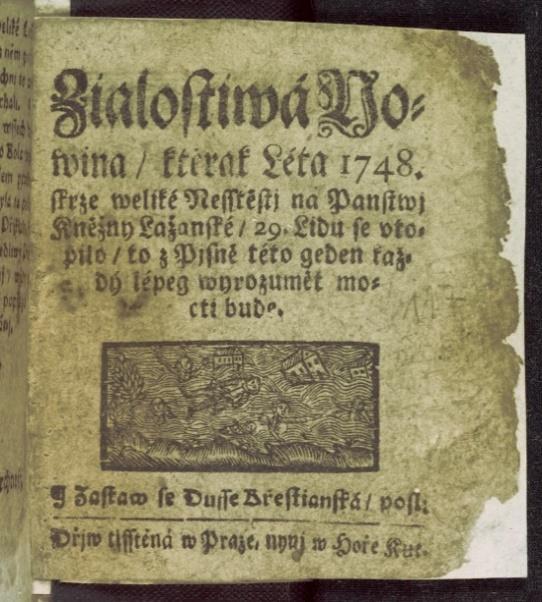 Zialostiwá No-
wina / kterak Léta 1748.
skrze weliké Nesstěstj na Panstwj
Kněžny Lažanské / 29. Lidu se vto-
pilo / to z Pjsně této geden kaž-
dý lépeg wyrozumět mo-
cti bude.
117
¶ Zastaw se Dusse Křestianská / posl:
Dřjw tisstěná w Praze, nynj w Hoře Kut.